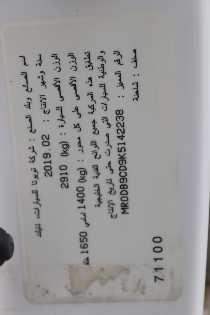 اسم المصنع وبلد الصنع : شركة تويوتا للسيارات، تايلاند
سنة وشهر الانتاج : 2019.02
الوزن الأقصى للسيارة : (kg) 2910
الوزن الأقصى على كل محور : (kg) 1400 أمامي 1650 خلفي
تطابق هذه المركبة جميع اللوائح الفنية الخليجية
والوطنية للسيارات التي صدرت حتى تاريخ الإنتاج
الرقم المميز : MR0DB9CD9K5142238
صنف : شاحنة
71100